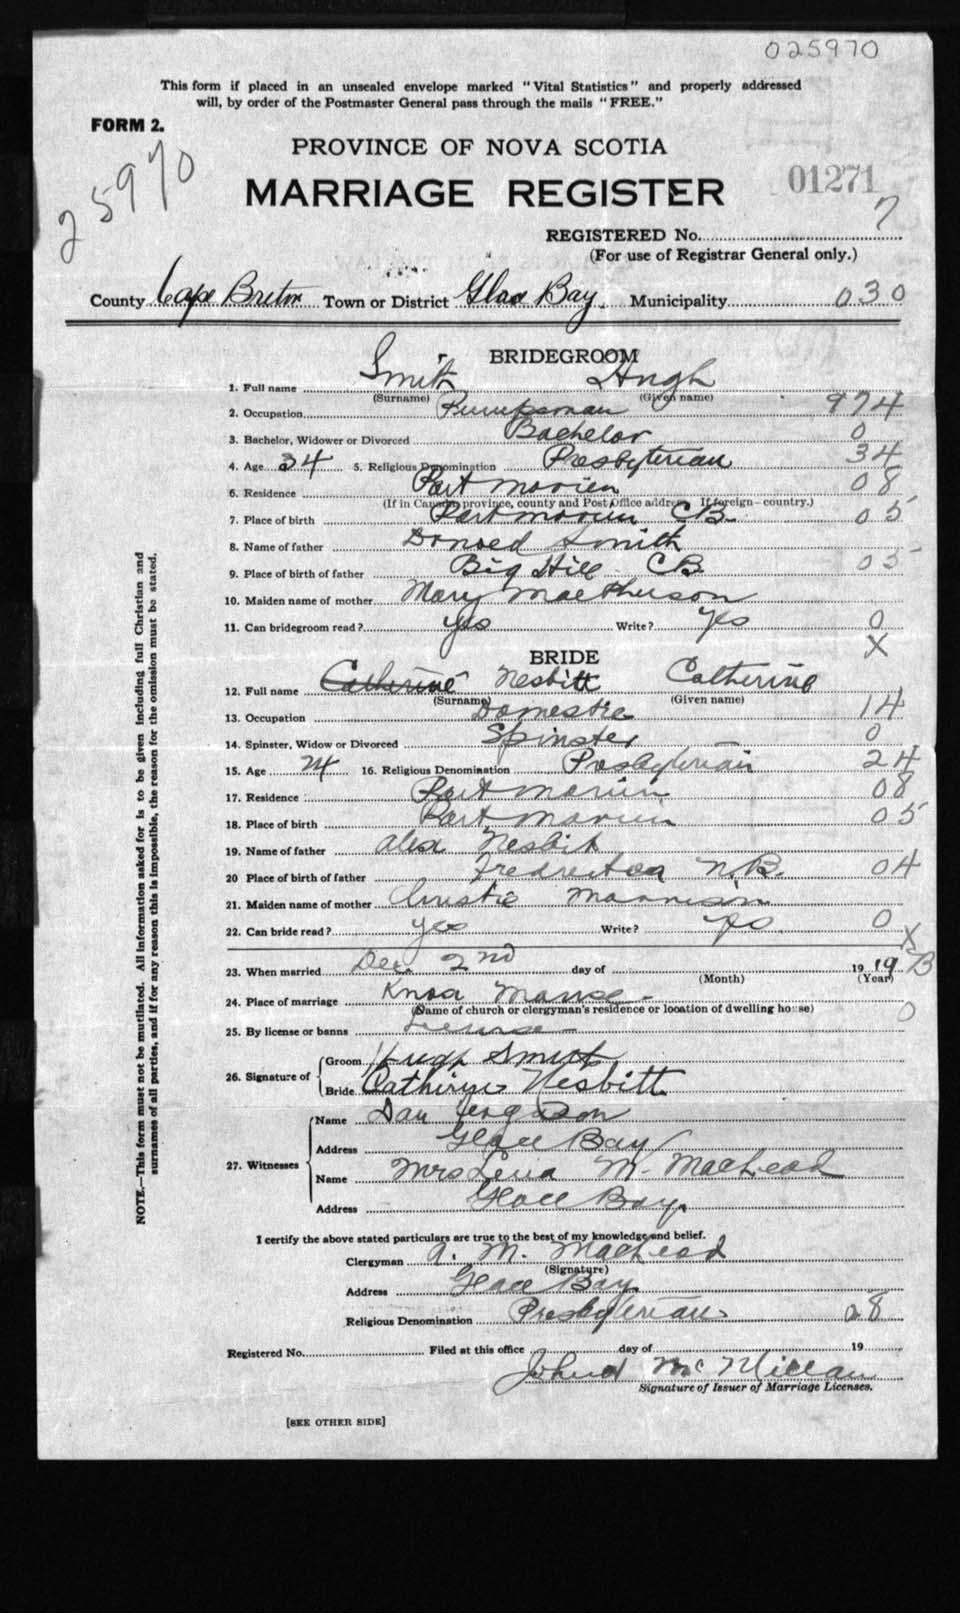 025970
This form if placed in an unsealed envelope marked "Vital Statistics" and properly addressed
will, by order of the Postmaster General pass through the mails "FREE."
FORM 2.
25970
PROVINCE OF NOVA SCOTIA
01271
MARRIAGE REGISTER
REGISTERED No. 7
(For use of Registrar General only.)
County Cape Breton Town or District Glace Bay. Municipality 030
BRIDEGROOM
1. Full name Smith Hugh
(Surname) (Given name)
2. Occupation Pumpsman 974
3. Bachelor, Widower or Divorced Bachelor 0
4. Age 34 5. Religious Denomination Presbyterian 34
6. Residence Port Morien 08
(If in Canada, province, county and Post Office address. If foreign—country.)
7. Place of birth Port Morien CB. 05
8. Name of father Donald Smith
9. Place of birth of father Big Hill CB. 05
10. Maiden name of mother Mary MacPherson
11. Can bridegroom read? yes Write? yes 0
X
BRIDE
12. Full name Catherine Nesbitt Catherine
(Surname) (Given name)
13. Occupation Domestic 14
14. Spinster, Widow or Divorced Spinster 0
15. Age 24 16. Religious Denomination Presbyterian 24
17. Residence Port Morien 08
18. Place of birth Port Morien 05
19. Name of father Alex Nesbit
20 Place of birth of father Fredricton N.B. 04
21. Maiden name of mother Christie Morrison
22. Can bride read? yes Write? yes 0
X
23. When married Dec 2nd day of 1919 B
(Month) (Year)
24. Place of marriage Knox Manse
(Name of church or clergyman's residence or location of dwelling house) 0
25. By license or banns License
26. Signature of Groom Hugh Smith
Bride Catherine Nesbitt
27. Witnesses
Name Dan Ferguson
Address Glace Bay
Name Mrs Lena M. MacLeod
Address Glace Bay.
I certify the above stated particulars are true to the best of my knowledge and belief.
Clergyman A. M. MacLeod
(Signature)
Address Glace Bay.
Religious Denomination Presbyterian 28
Registered No. Filed at this office day of 19
John McMillan
Signature of Issuer of Marriage Licenses.
[SEE OTHER SIDE]
NOTE.—This form must not be mutilated. All information asked for is to be given including full Christian and
surnames of all parties, and if for any reason this is impossible, the reason for the omission must be stated.